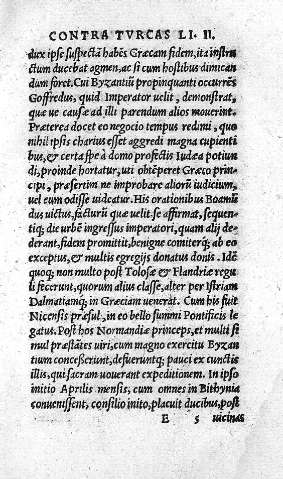 CONTRA TVRCAS LI. II.
dux ipse suspectā habēs Græcam fidem, ita instru
ctum ducebat agmen, ac si cum hostibus dimican
dum foret. Cui Byzantiū propinquanti occurrēs
Goffredus, quid Imperator uelit, demonstrat,
quæ ue causæ ad illi parendum alios mouerint.
Præterea docet eo negocio tempus redimi, quo
nihil ipsis charius esset aggredi magna cupienti
bus, & certa spe à domo profectis Iudæa potiun
di, proinde hortatur, uti obtēperet Græco prin-
cipi, præsertim ne improbare alioru iudicium,
uel eum odisse uideatur. His orationibus Boamū
dus uictus, facturū quæ uelit se affirmat, sequen-
tiq; die urbem ingressus imperatori, quam alij de-
derant, fidem promittit, benigne comiterq; ab eo
exceptus, & multis egregijs donatus donis. Idē
quoq; non multo post Tolosæ & Flandriæ regu
li fecerunt, quorum alius classe, alter per Istriam
Dalmatiamq; in Græciam uenerat. Cum his fuit
Nicensis præsul, in eo bello summi Pontificis le
gatus. Post hos Normandiæ princeps, et multi si
mul præstātes uiri, cum magno exercitu Byzan
tium concesserunt, defueruntq; pauci ex cunctis
illis, qui sacram uouerant expeditionem. In ipso
initio Aprilis mensis, cum omnes in Bithynia
conuenissent, consilio inito, placuit ducibus, post
E 5 uicinas